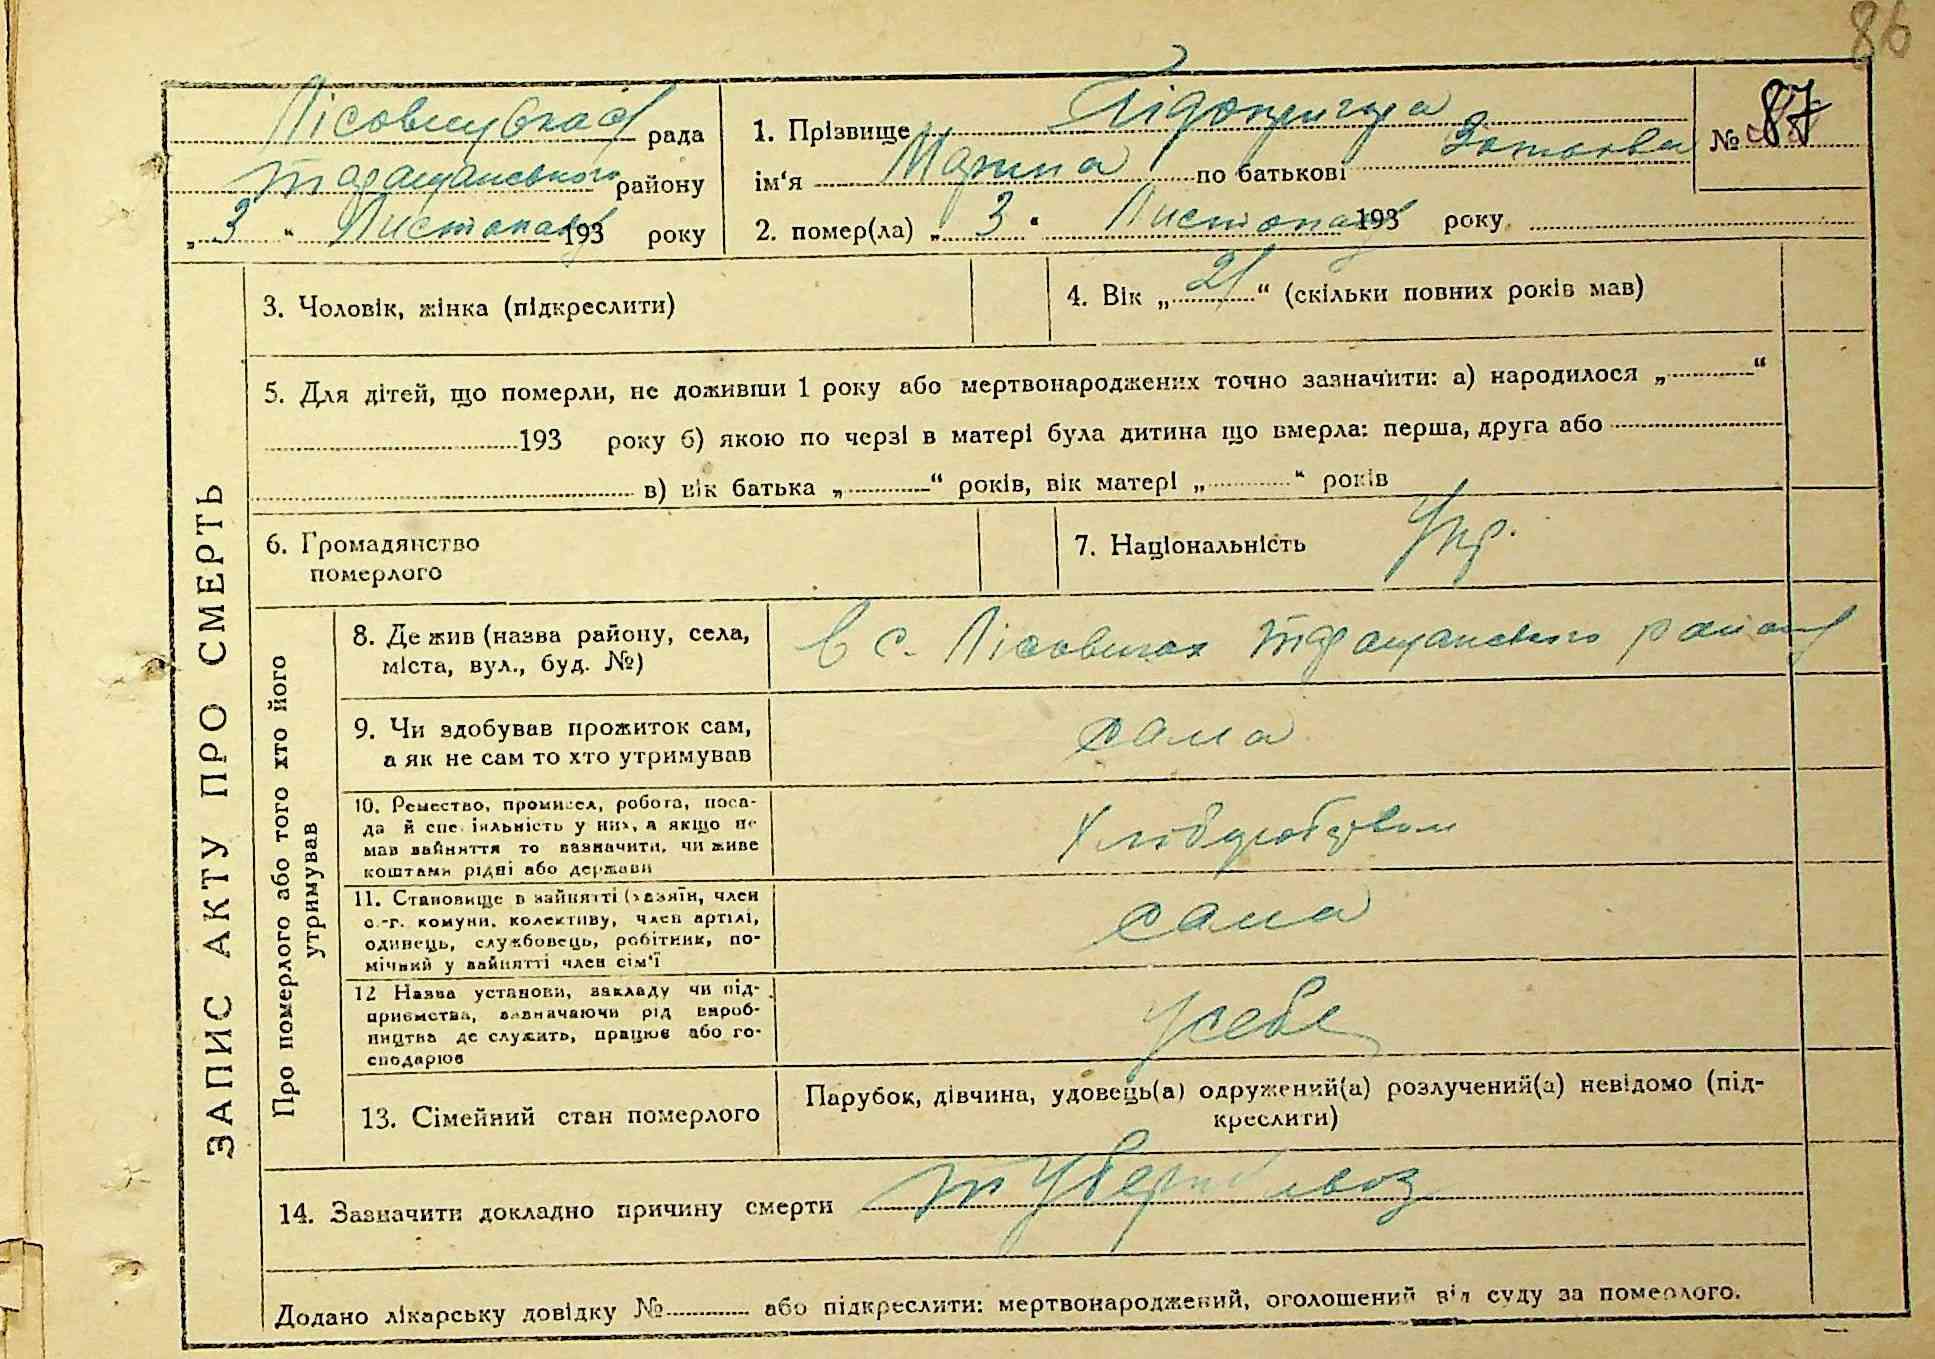 86
Лісовицька рада
Таращанського району
„ 3 “ Листопада 193 року
1. Прізвище Підопригора
ім‘я Марина по батькові
№ 87
2. помер(ла) „ 3 “ Листопада 193 року
ЗАПИС АКТУ ПРО СМЕРТЬ
3. Чоловік, жінка (підкреслити)
4. Вік „ 21 “ (скільки повних років мав)
5. Для дітей, що померли, не доживши 1 року або мертвонароджених точно зазначити: а) народилося „ “
193 року б) якою по черзі в матері була дитина що вмерла: перша, друга або
в) вік батька „ “ років, вік матері „ “ років
6. Громадянство
померлого
7. Національність Укр.
Про померлого або того хто його
утримував
8. Де жив (назва району, села,
міста, вул., буд. №)
в с. Лісовичах Таращанського району
9. Чи здобував прожиток сам,
а як не сам то хто утримував
сама
10. Ремество, промисел, робота, поса-
да й спеціяльність у них, а якщо не
мав зайняття то зазначити, чи живе
коштами рідні або держави
Хліборобством
11. Становище в зайнятті (хазяїн, член
с.-г. комуни, колективу, член артілі,
одинець, службовець, робітник, по-
мічний у зайнятті член сім‘ї
сама
12 Назва установи, закладу чи під-
приємства, зазначаючи рід вироб-
ництва де служить, працює або го-
сподарює
У себе
13. Сімейний стан померлого
Парубок, дівчина, удовець(а) одружений(а) розлучений(а) невідомо (під-
креслити)
14. Зазначити докладно причину смерти туберкульоз
Додано лікарську довідку № або підкреслити: мертвонароджений, оголошений від суду за померлого.